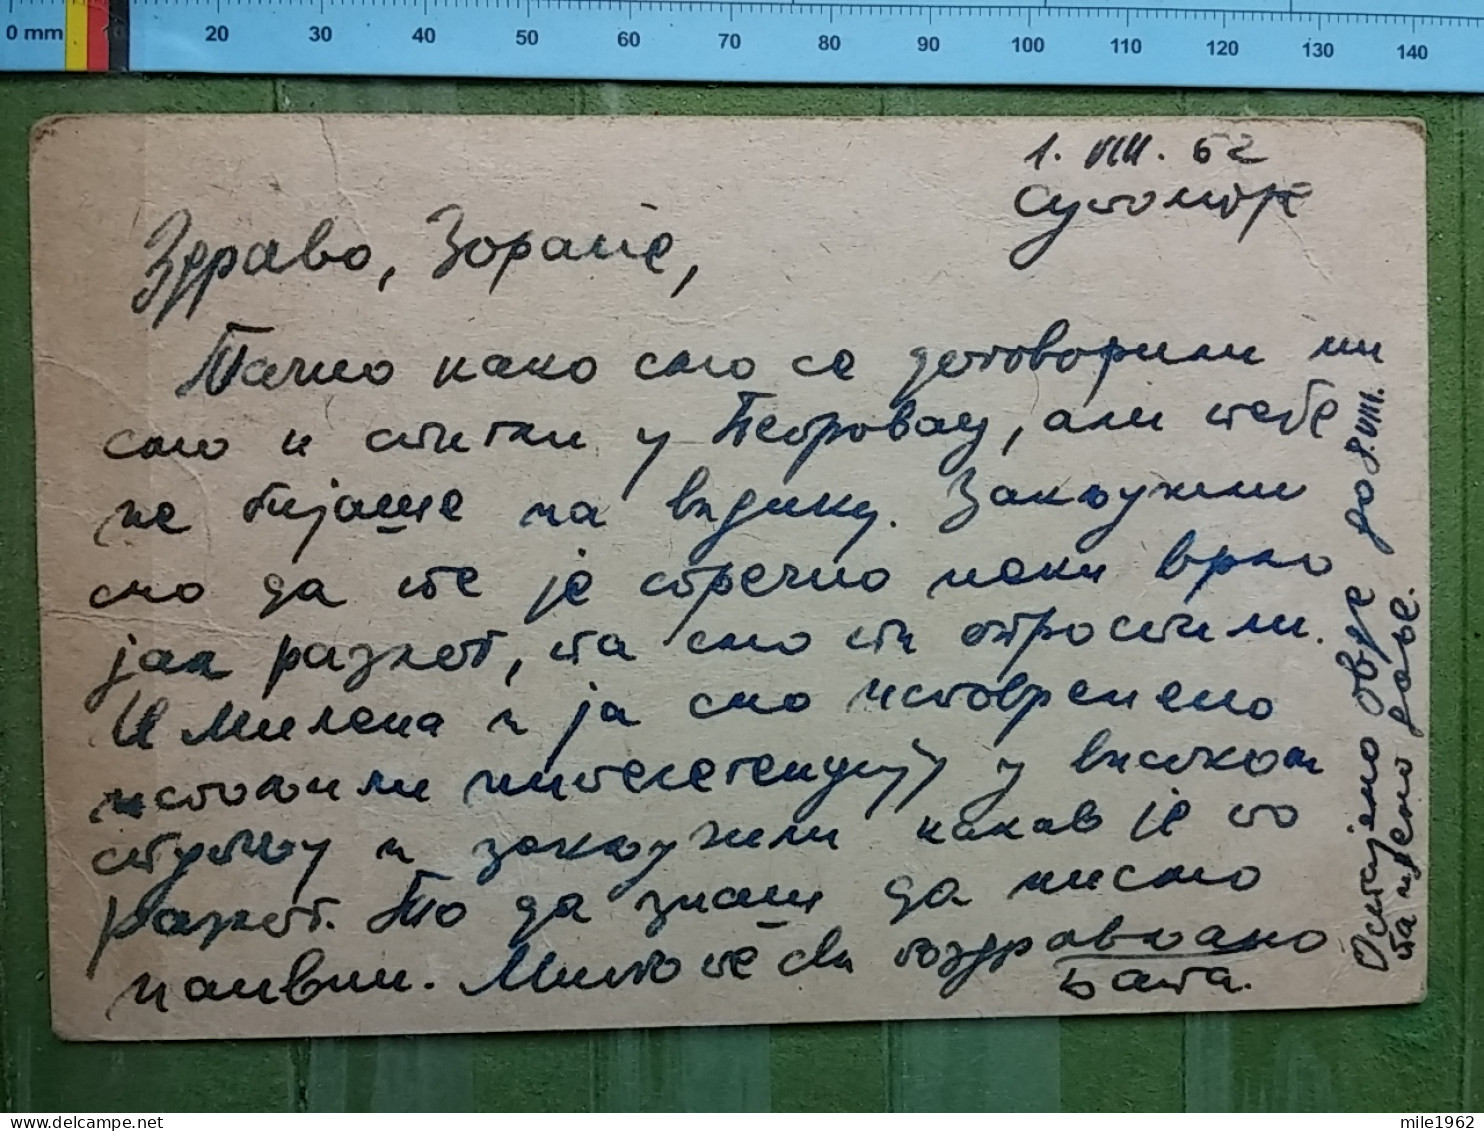 0 mm 10 20 30 40 50 60 70 80 90 100 110 120 130 140
1. VIII. 62
Сутоморе
Здраво, Зоране,
Тачно како смо се договорили ми
смо и стигли у Петровац, али тебе
не бијаше на видику. Закључили
смо да те је спречио неки врло
јак разлог, па смо ти опростили.
И Милена и ја смо истовремено
испољили интелегенцију у високом
ступњу и закључили какав је то
разлог. То да знаш да нисмо
наивни. Много те сви поздрављамо
Бата.
Остајемо овде до 8. VIII.
па идемо даље.
mile1962